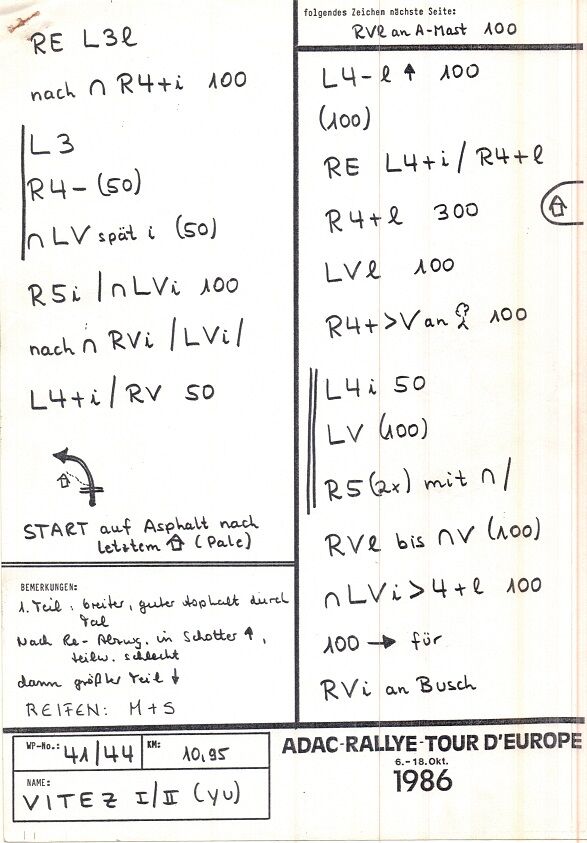 RE L3l
nach ∩ R4+i 100
L3
R4- (50)
∩ LV spät i (50)
R5i / ∩LVi 100
nach ∩ RVi / LVi /
L4+i / RV 50
START auf Asphalt nach
letztem ⇧ (Pale)
BEMERKUNGEN:
1. Teil: breiter, guter Asphalt durch
Tal
Nach Re-Abzwg. in Schotter ↑,
teilw. schlecht
dann größter Teil ↓
REIFEN: M+S
WP-No.: 41/44 KM: 10,95
NAME:
VITEZ I/II (YU)
folgendes Zeichen nächste Seite:
RVl an A-Mast 100
L4-l ↑ 100
(100)
RE L4+i / R4+l
R4+l 300
LVl 100
R4+>V an 100
L4i 50
LV (100)
R5 (2x) mit ∩ /
RVl bis ∩V (100)
∩ LVi > 4+l 100
100 → für
RVi an Busch
ADAC-RALLYE-TOUR D'EUROPE
6.-18.Okt.
1986